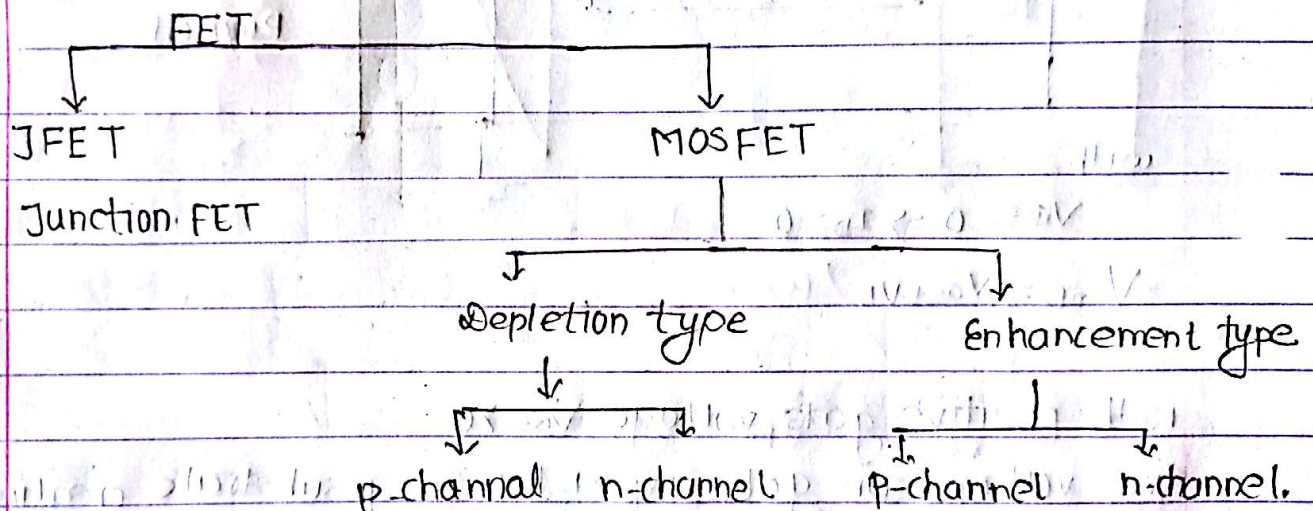 FET
JFET MOSFET
Junction FET
Depletion type Enhancement type
p-channal n-channel p-channel n-channel.